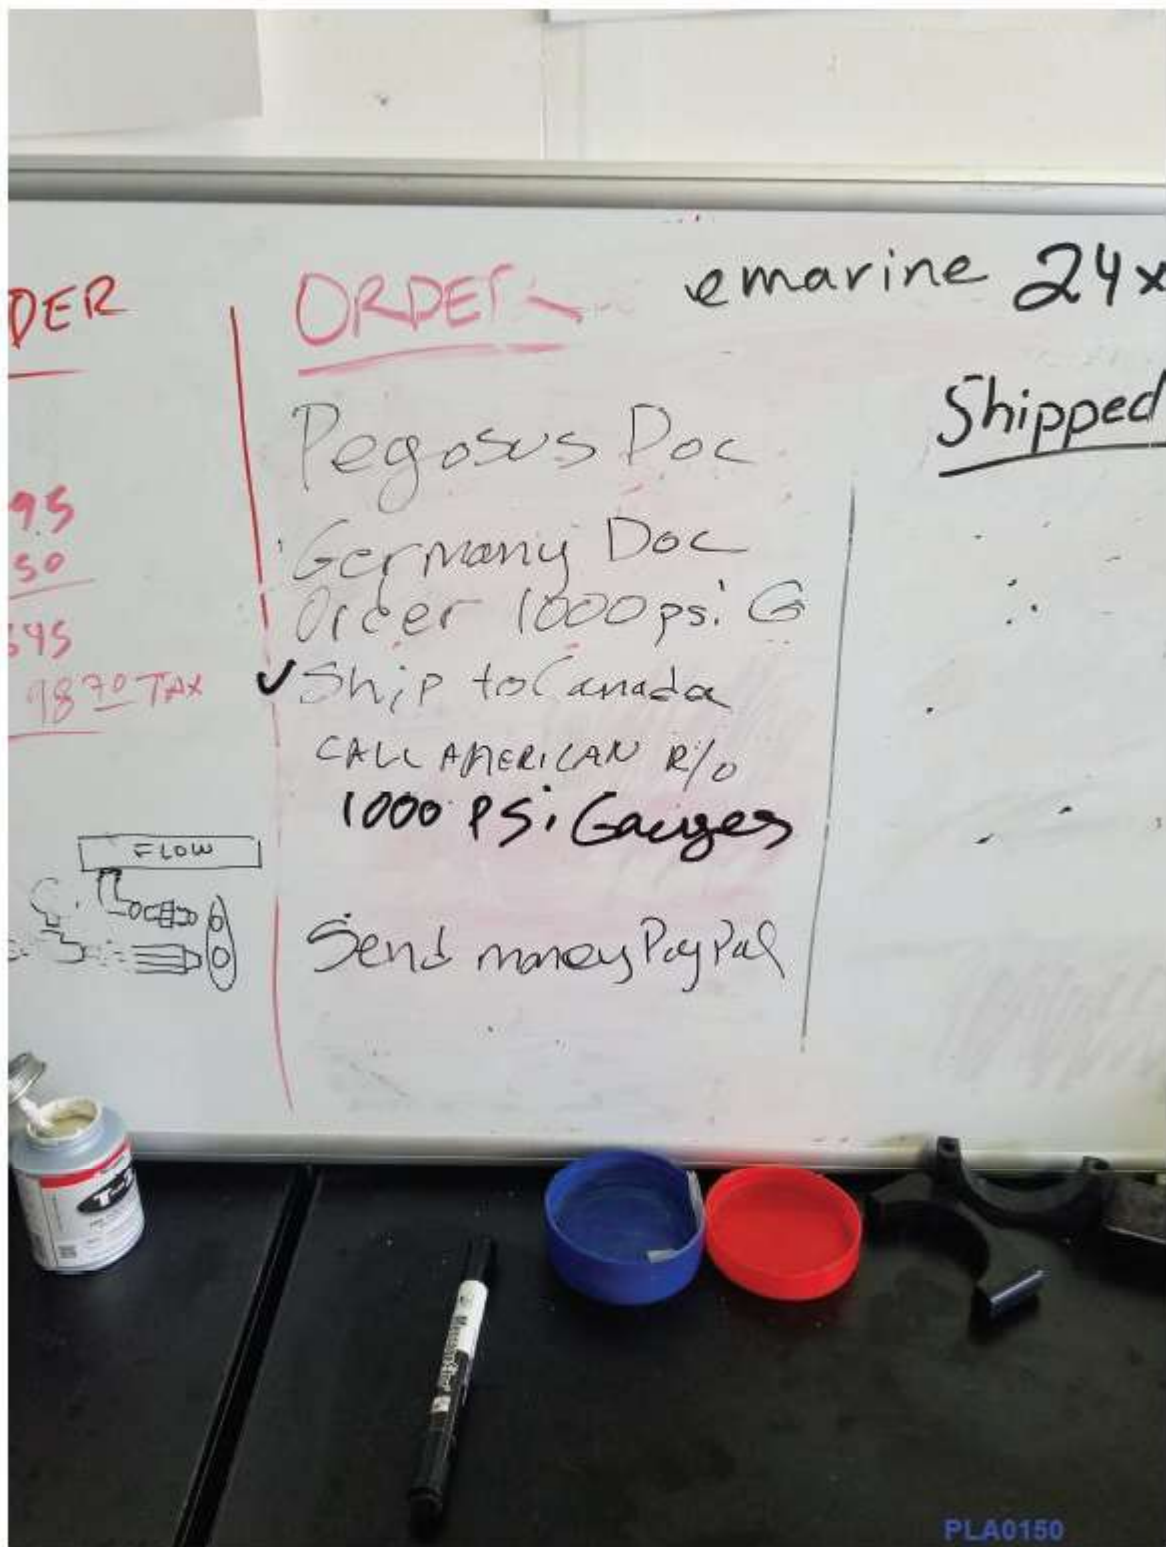 DER
95
50
545
98 70 TAX
FLOW
ORDER
Pegosus Doc
Germany Doc
Order 1000 psi G
✓ Ship to Canada
CALL AMERICAN R/O
1000 PSi Gauges
Send money PayPal
emarine 24x
Shipped
PLA0150